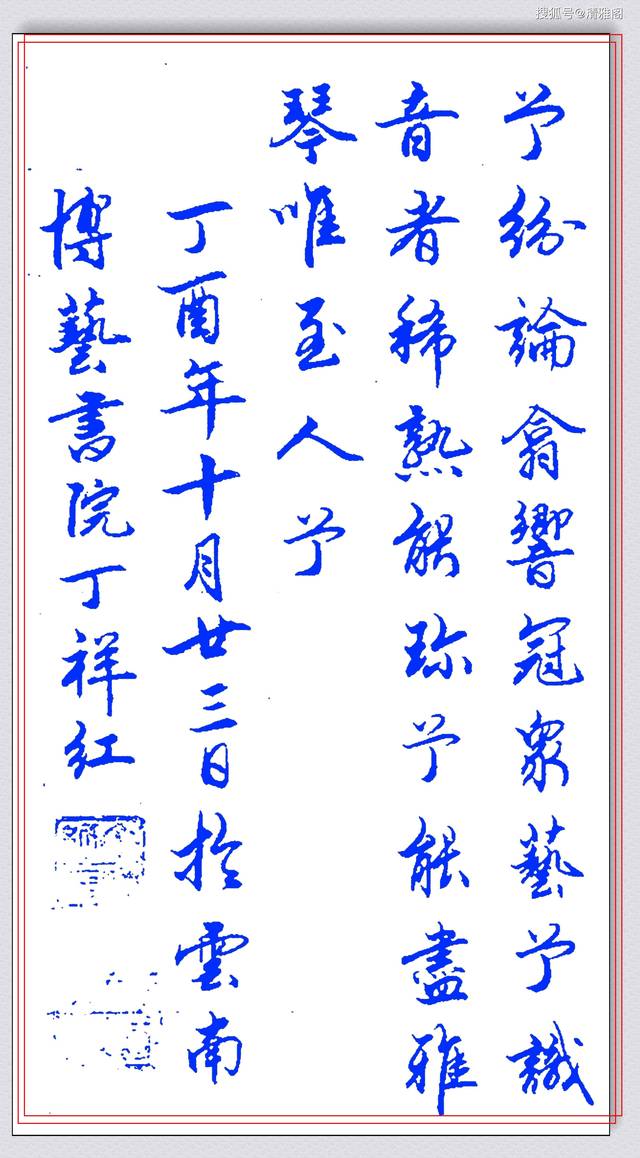 搜狐号@清雅阁
兮紛論翕響冠衆藝兮識
音者稀熟能珎兮能盡雅
琴唯至人兮
丁酉年十月廿三日於雲南
博藝書院丁祥紅